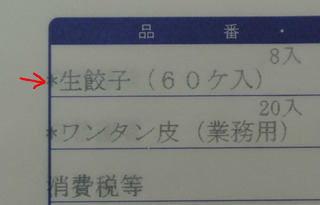 品 番 ・
8入
*生餃子（60ケ入）
20入
*ワンタン皮（業務用）
消費税等